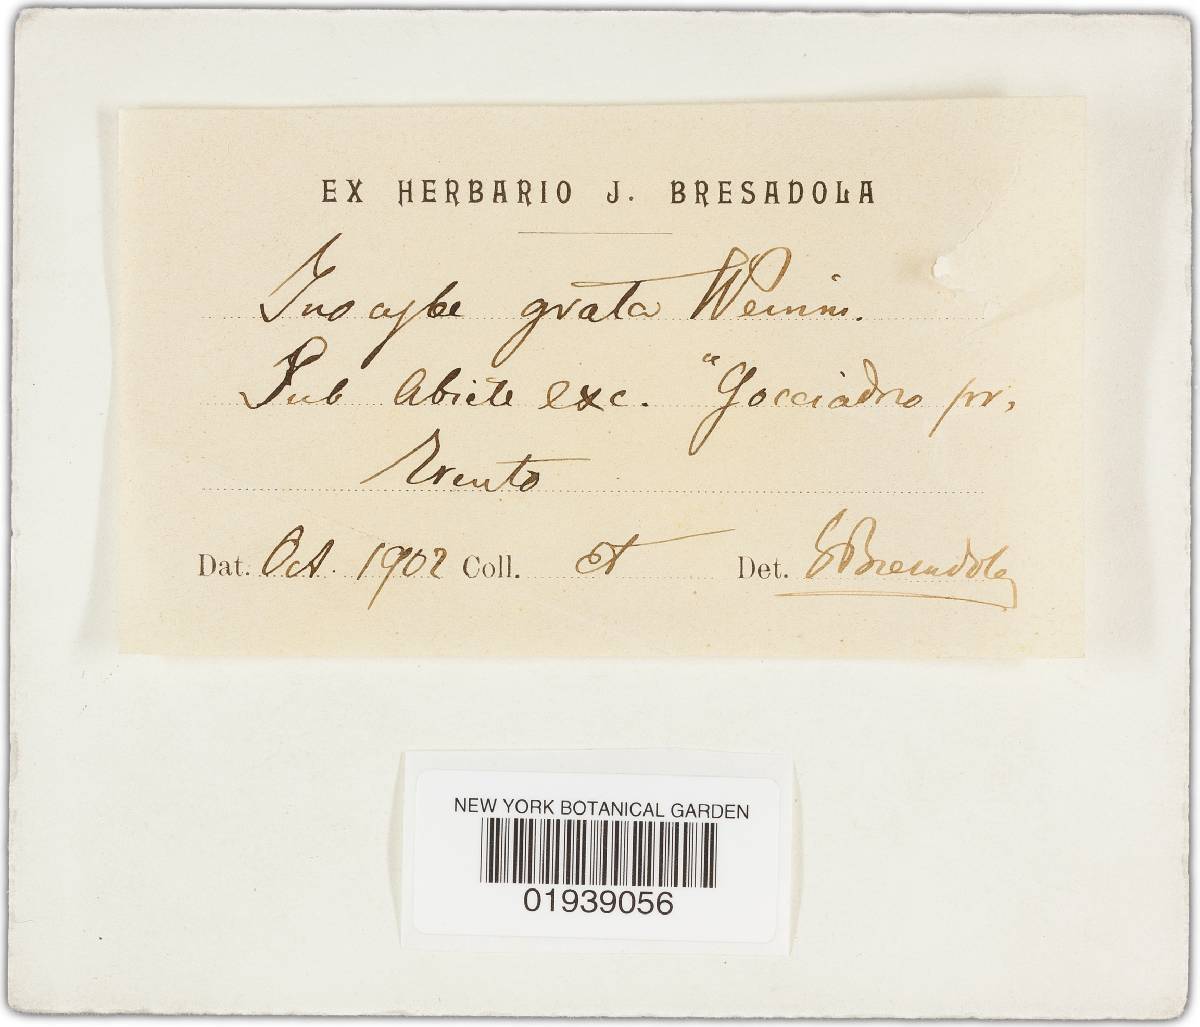 EX HERBARIO J. BRESADOLA
Inocybe grata Weinm.
Sub Abiete exc. "Gocciadoro pr.
Trento
Dat. Oct. 1902 Coll. et Det. GBresadola
NEW YORK BOTANICAL GARDEN
01939056